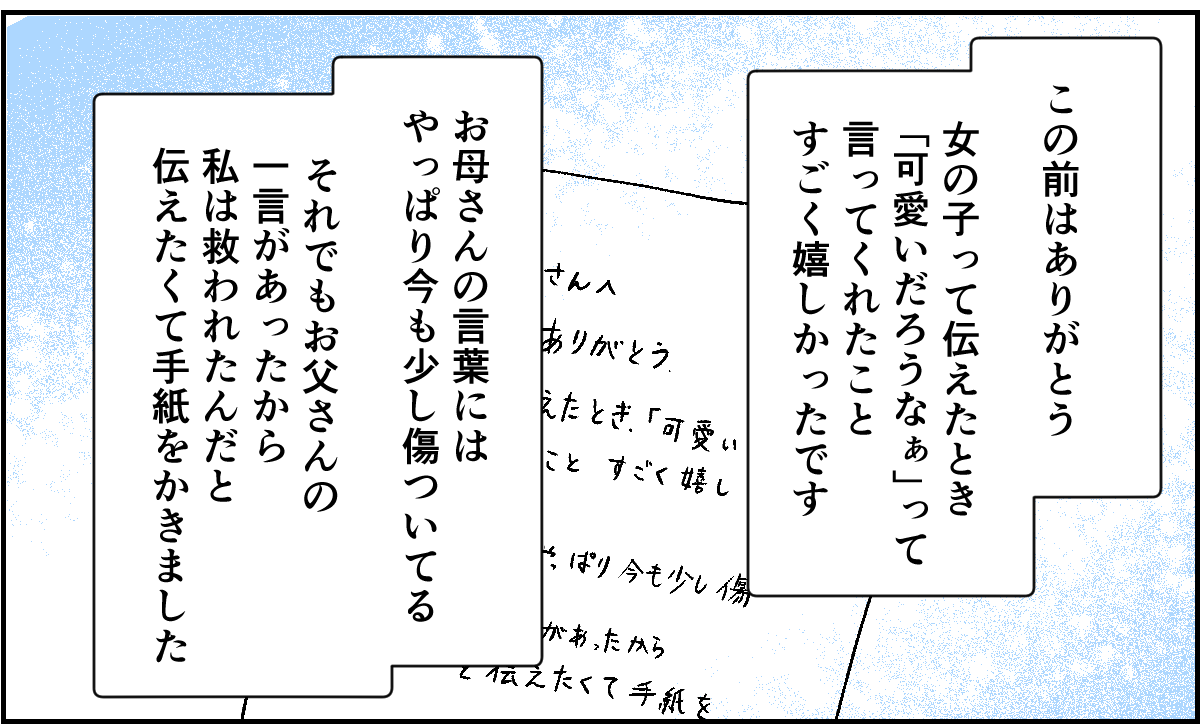 この前はありがとう
女の子って伝えたとき
「可愛いだろうなぁ」って
言ってくれたこと
すごく嬉しかったです
お母さんの言葉には
やっぱり今も少し傷ついてる
それでもお父さんの
一言があったから
私は救われたんだと
伝えたくて手紙をかきました
さんへ
ありがとう
えたとき、「可愛い
こと すごく嬉し
ぱり今も少し傷
があったから
と伝えたくて手紙を